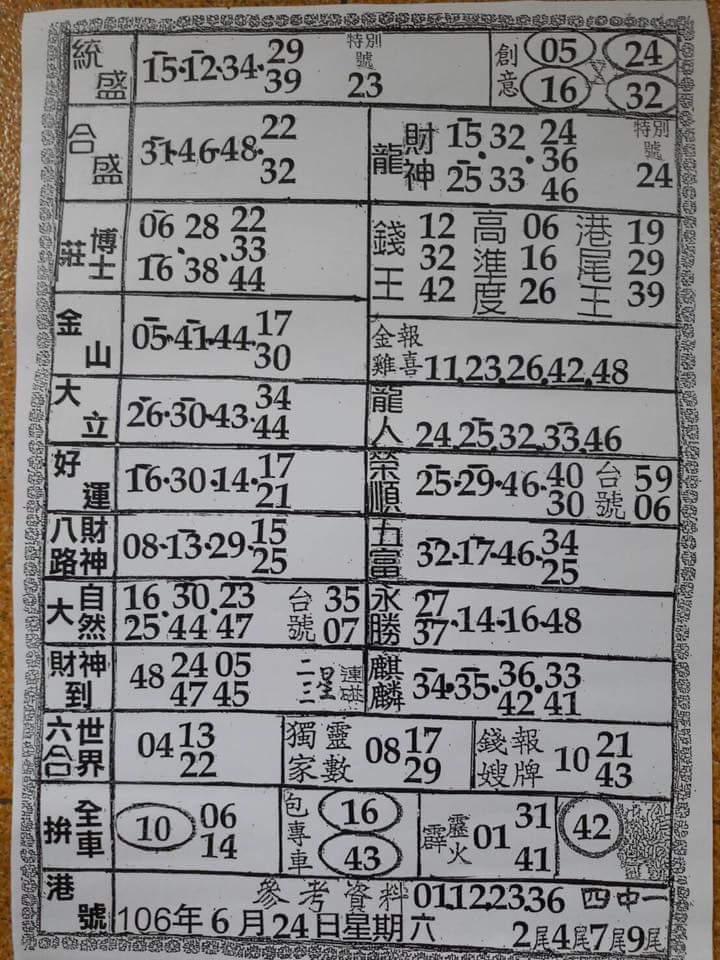 統盛 15·12·34·29 39 特別號 23 創意 05 24 16 32
合盛 31·46·48·22 32
龍 財神 15 32 24 25 33 36 46 特別號 24
莊博士 06 28 22 16 38 33 44
錢王 12 32 42 高進度 06 16 26 港尾王 19 29 39
金山 05·41·44·17 30
金雞報喜 11,23,26,42,48
大立 26·30·43·34 44
龍人 24,25,32,33,46
好運 16·30·14·17 21
榮順 25·29·46·40 30 台號 59 06
八路財神 08·13·29·15 25
五富 32·17·46·34 25
大自然 16 30 23 25 44 47 台號 35 07
永勝 27 37·14·16·48
財神到 48 24 05 47 45 二三星連碰
麒麟 34·35·36·33 42 41
六合世界 04 13 22
獨家靈數 08 17 29
錢嫂報牌 10 21 43
拚全車 10 06 14
包專車 16 43
霹靂火 01 31 41
42
港號 參考資料 01,12,23,36 四中一
106年6月24日星期六 2尾4尾7尾9尾